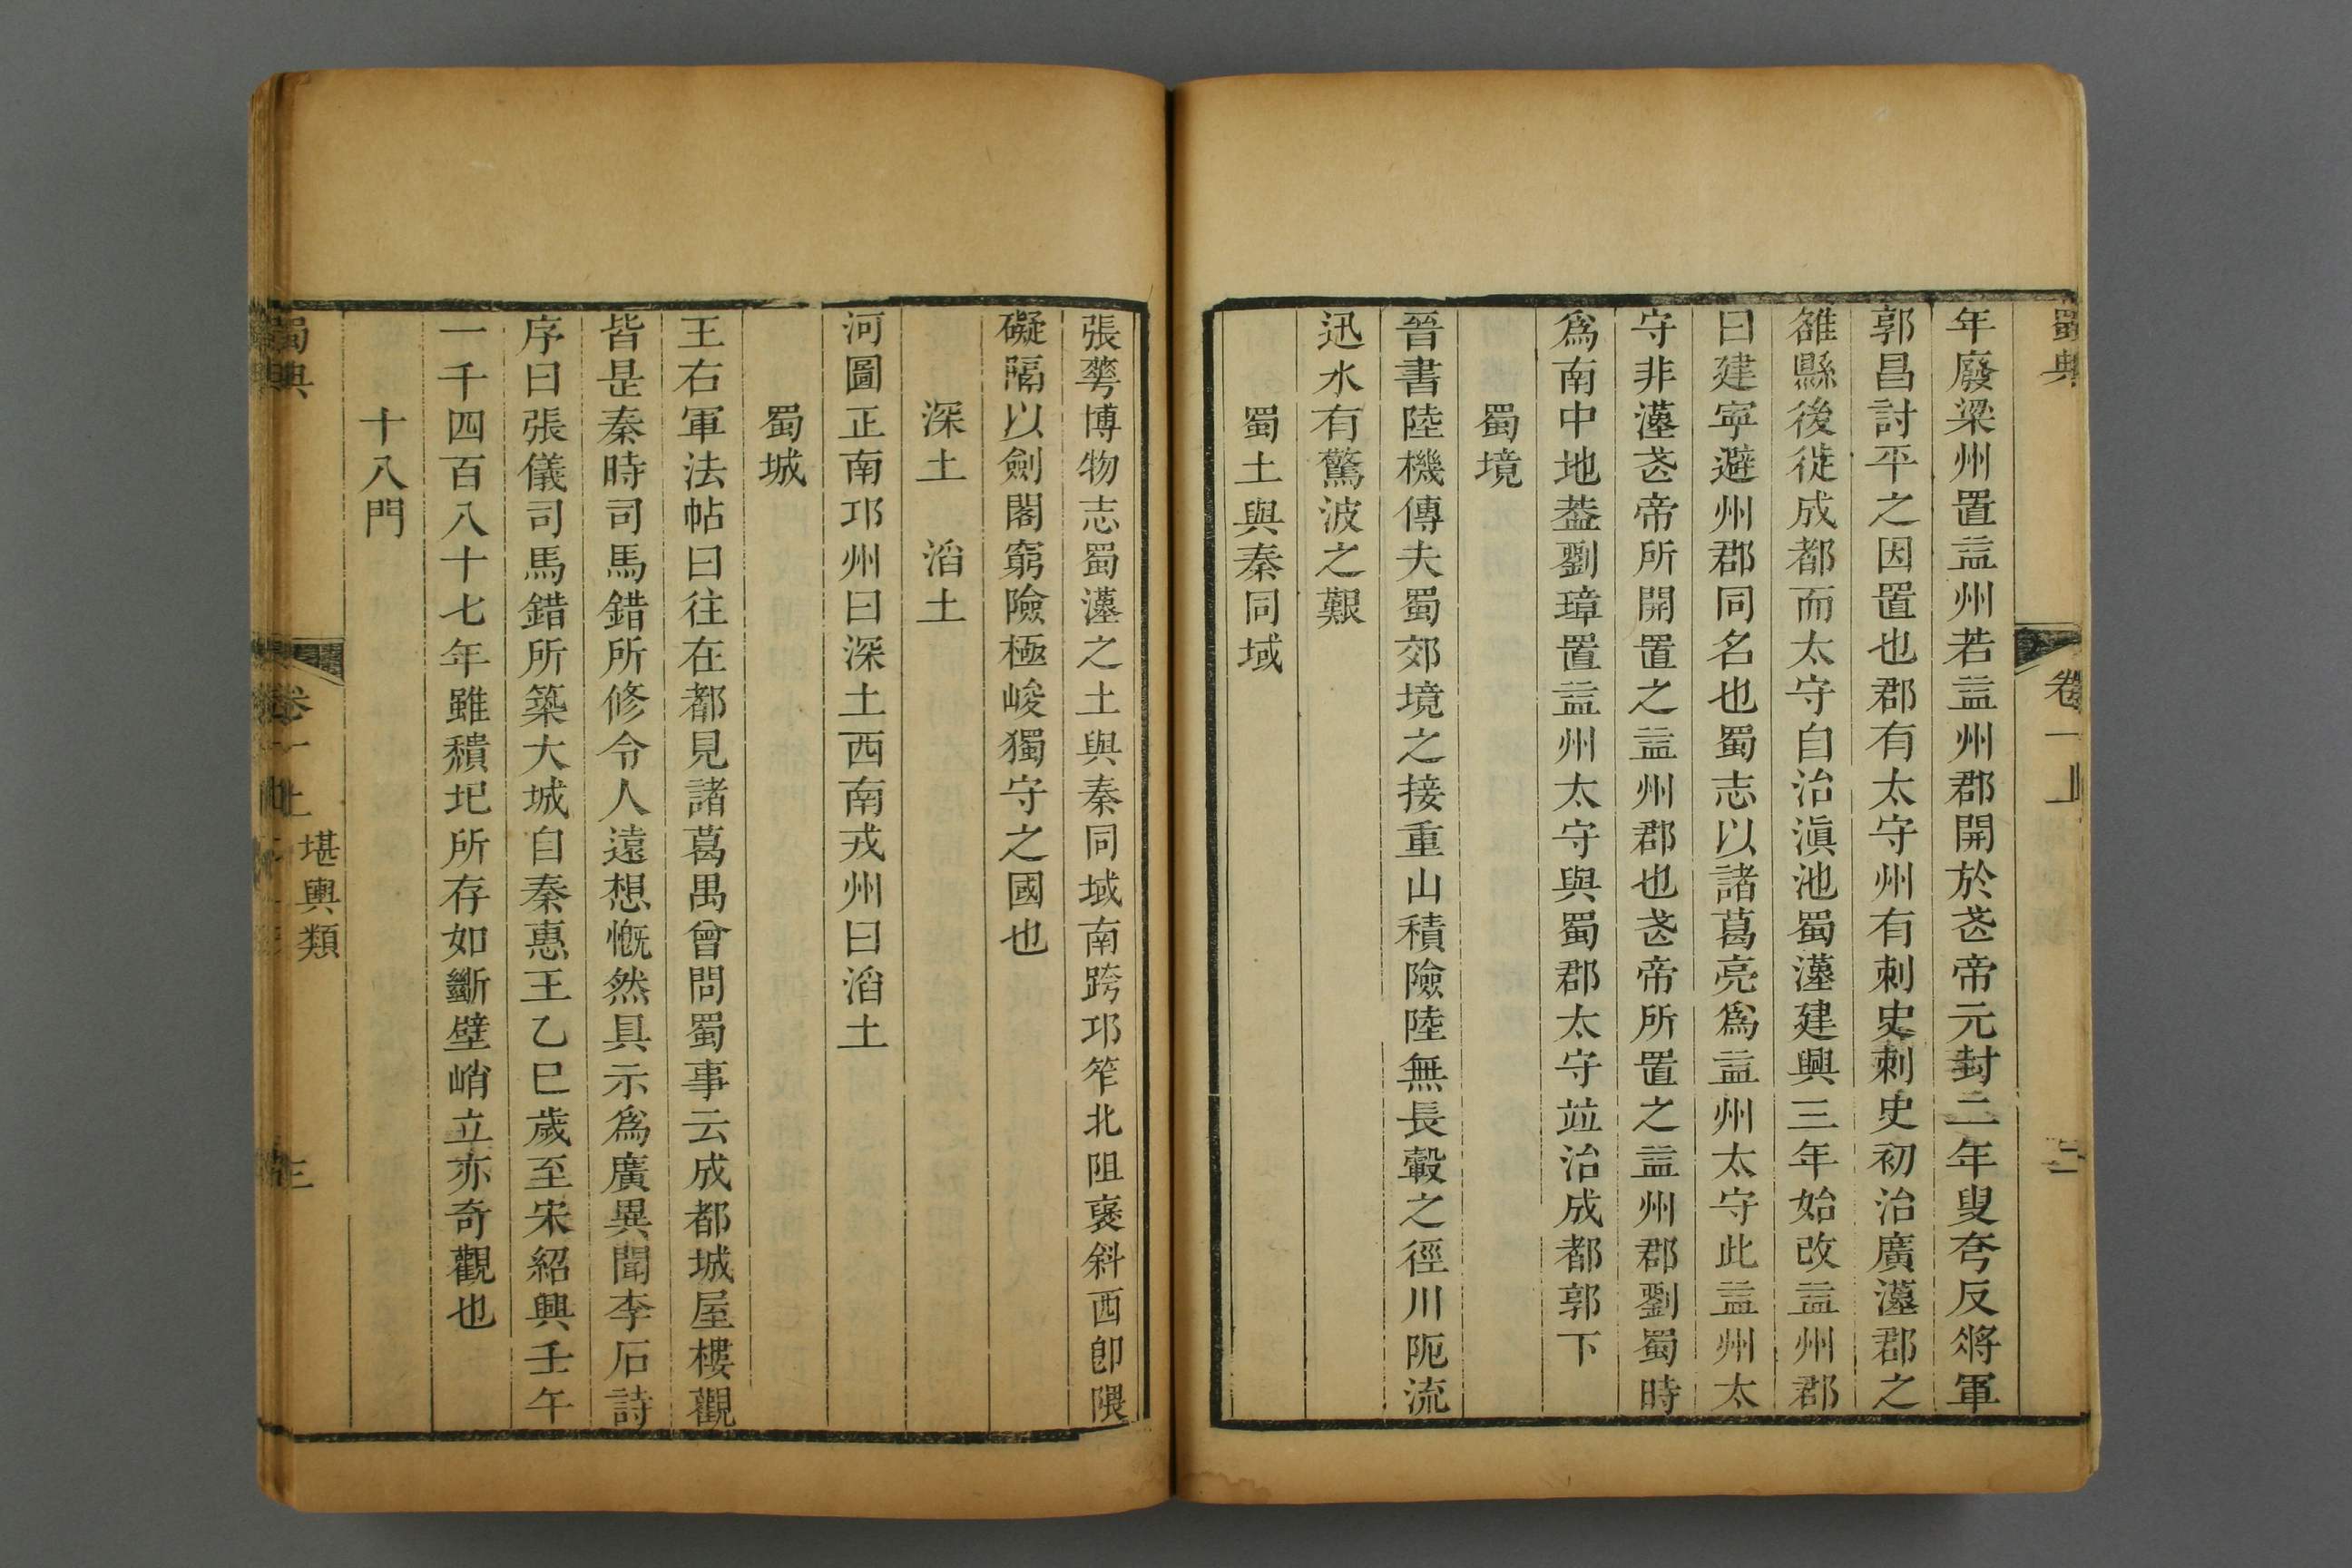 蜀典
卷一上
二
年廢梁州置益州若益州郡開於武帝元封二年叟夸反將軍
郭昌討平之因置也郡有太守州有刺史刺史初治廣漢郡之
雒縣後徙成都而太守自治滇池蜀漢建興三年始改益州郡
曰建寧避州郡同名也蜀志以諸葛亮爲益州太守此益州太
守非漢武帝所開置之益州郡也武帝所置之益州郡劉蜀時
爲南中地葢劉璋置益州太守與蜀郡太守竝治成都郭下
蜀境
晉書陸機傳夫蜀郊境之接重山積險陸無長轂之徑川阨流
迅水有驚波之艱
蜀土與秦同域
張華博物志蜀漢之土與秦同域南跨邛筰北阻褒斜西卽隈
礙隔以劍閣窮險極峻獨守之國也
深土　滔土
河圖正南邛州曰深土西南戎州曰滔土
蜀城
王右軍法帖曰往在都見諸葛禺曾問蜀事云成都城屋樓觀
皆是秦時司馬錯所修令人遠想慨然具示爲廣異聞李石詩
序曰張儀司馬錯所築大城自秦惠王乙巳歲至宋紹興壬午
一千四百八十七年雖穨圮所存如斷壁峭立亦奇觀也
十八門
蜀典
卷一上
堪輿類
三